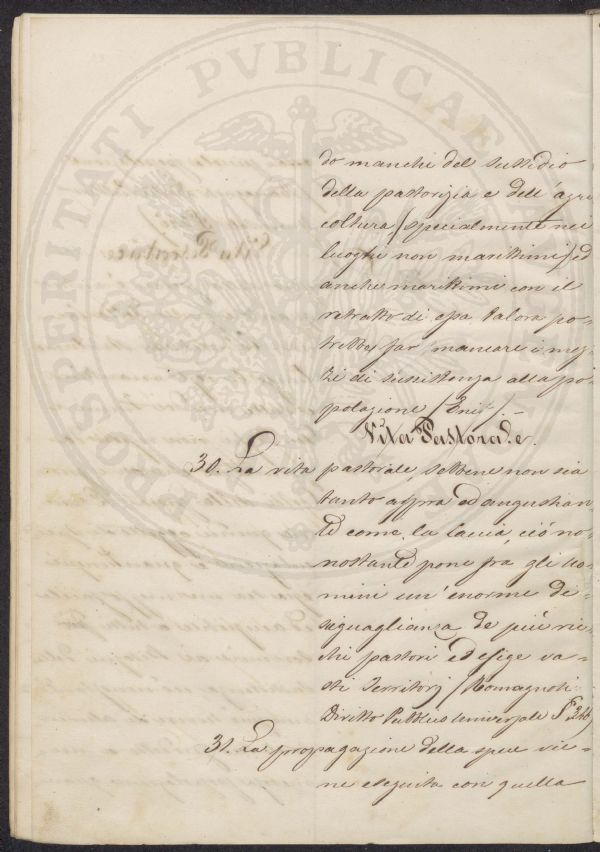 PROSPERITATI PVBLICAE
do manchi del sussidio
della pastorizia e dell'agri
coltura (specialmente nei
luoghi non marittimi) ed
anche marittimi con il
ritratto di essa talora po-
trebbe far mancare i mez-
zi di sussistenza alla po-
polazione
Vita Pastorale.
30. La vita pastorale, sebbene non sia
tanto aspra ed angustian-
te come la caccia, ciò no-
nostante pone fra gli uo-
mini un'enorme di-
suguaglianza de più ric-
chi pastori ed esige va-
sti territorj (Romagnosi:
Diritto Pubblico Universale
31. La propagazione della specie vie-
ne eseguita con quella